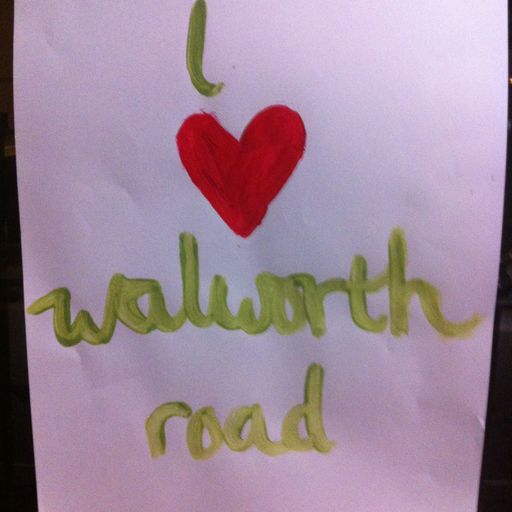 I
walworth
road